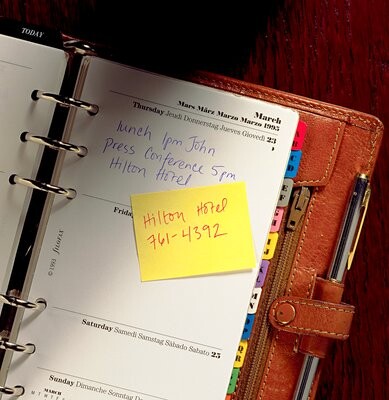 TODAY
March
Mars März Marzo Marzo 1995
Thursday Jeudi Donnerstag Jueves Giovedì 23
lunch 1pm John
Press Conference 5pm
Hilton Hotel
Frida
Hilton Hotel
761-4392
© 1993 filofax
Saturday Samedi Samstag Sàbado Sabato 25
Sunday Dimanche Sonntag Do
MARCH
M T W T F S